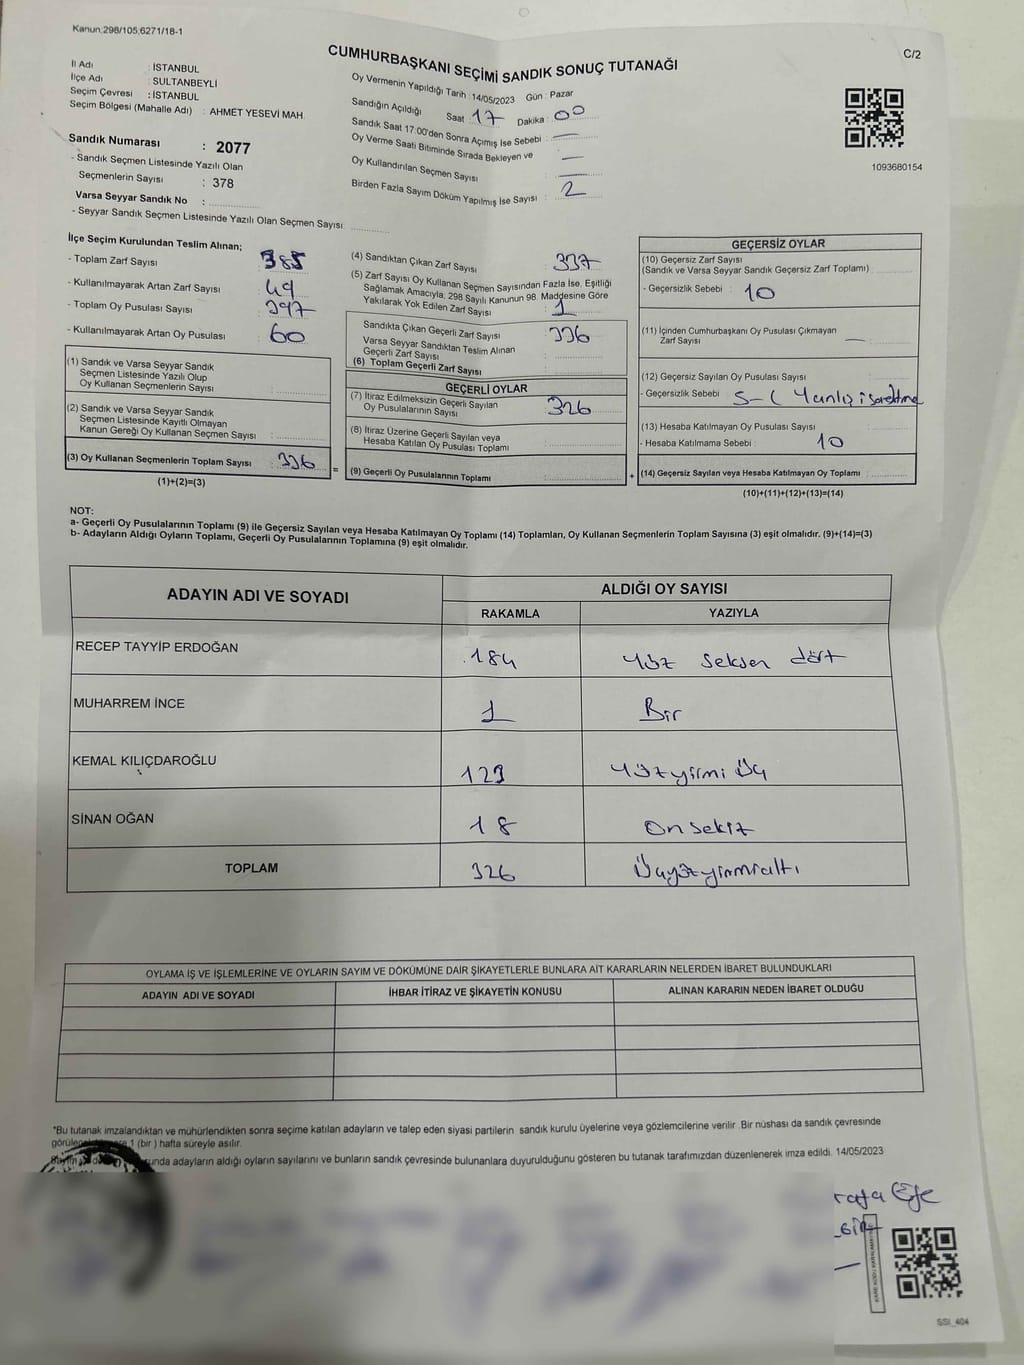 Kanun:298/105,6271/18-1
CUMHURBAŞKANI SEÇİMİ SANDIK SONUÇ TUTANAĞI
C/2
İl Adı : İSTANBUL
İlçe Adı : SULTANBEYLİ
Seçim Çevresi : İSTANBUL
Seçim Bölgesi (Mahalle Adı) : AHMET YESEVİ MAH.
Oy Vermenin Yapıldığı Tarih : 14/05/2023 Gün : Pazar
Sandığın Açıldığı Saat : 17 Dakika : 00
Sandık Saat 17:00'den Sonra Açımış İse Sebebi : —
Oy Verme Saati Bitiminde Sırada Bekleyen ve
Oy Kullandırılan Seçmen Sayısı : —
Birden Fazla Sayım Döküm Yapılmış İse Sayısı : 2
1093680154
Sandık Numarası : 2077
- Sandık Seçmen Listesinde Yazılı Olan
Seçmenlerin Sayısı : 378
Varsa Seyyar Sandık No :
- Seyyar Sandık Seçmen Listesinde Yazılı Olan Seçmen Sayısı:
İlçe Seçim Kurulundan Teslim Alınan;
- Toplam Zarf Sayısı : 385
- Kullanılmayarak Artan Zarf Sayısı : 49
- Toplam Oy Pusulası Sayısı : 397
- Kullanılmayarak Artan Oy Pusulası : 60
(1) Sandık ve Varsa Seyyar Sandık
Seçmen Listesinde Yazılı Olup
Oy Kullanan Seçmenlerin Sayısı :
(2) Sandık ve Varsa Seyyar Sandık
Seçmen Listesinde Kayıtlı Olmayan
Kanun Gereği Oy Kullanan Seçmen Sayısı :
(3) Oy Kullanan Seçmenlerin Toplam Sayısı : 336
(1)+(2)=(3)
(4) Sandıktan Çıkan Zarf Sayısı : 337
(5) Zarf Sayısı Oy Kullanan Seçmen Sayısından Fazla İse, Eşitliği
Sağlamak Amacıyla, 298 Sayılı Kanunun 98. Maddesine Göre
Yakılarak Yok Edilen Zarf Sayısı : 1
Sandıkta Çıkan Geçerli Zarf Sayısı : 336
Varsa Seyyar Sandıktan Teslim Alınan
Geçerli Zarf Sayısı :
(6) Toplam Geçerli Zarf Sayısı :
=
GEÇERLİ OYLAR
(7) İtiraz Edilmeksizin Geçerli Sayılan
Oy Pusulalarının Sayısı : 326
(8) İtiraz Üzerine Geçerli Sayılan veya
Hesaba Katılan Oy Pusulası Toplamı :
(9) Geçerli Oy Pusulalarının Toplamı :
+
GEÇERSİZ OYLAR
(10) Geçersiz Zarf Sayısı
(Sandık ve Varsa Seyyar Sandık Geçersiz Zarf Toplamı) :
- Geçersizlik Sebebi : 10
(11) İçinden Cumhurbaşkanı Oy Pusulası Çıkmayan
Zarf Sayısı : —
(12) Geçersiz Sayılan Oy Pusulası Sayısı :
- Geçersizlik Sebebi : 5-( Yanlış işaretme
(13) Hesaba Katılmayan Oy Pusulası Sayısı :
- Hesaba Katılmama Sebebi : 10
(14) Geçersiz Sayılan veya Hesaba Katılmayan Oy Toplamı :
(10)+(11)+(12)+(13)=(14)
NOT:
a- Geçerli Oy Pusulalarının Toplamı (9) ile Geçersiz Sayılan veya Hesaba Katılmayan Oy Toplamı (14) Toplamları, Oy Kullanan Seçmenlerin Toplam Sayısına (3) eşit olmalıdır. (9)+(14)=(3)
b- Adayların Aldığı Oyların Toplamı, Geçerli Oy Pusulalarının Toplamına (9) eşit olmalıdır.
ADAYIN ADI VE SOYADI
ALDIĞI OY SAYISI
RAKAMLA YAZIYLA
RECEP TAYYİP ERDOĞAN 184 Yüz seksen dört
MUHARREM İNCE 1 Bir
KEMAL KILIÇDAROĞLU 123 Yüzyirmi üç
SİNAN OĞAN 18 Onsekiz
TOPLAM 326 Üçyüzyirmialtı
OYLAMA İŞ VE İŞLEMLERİNE VE OYLARIN SAYIM VE DÖKÜMÜNE DAİR ŞİKAYETLERLE BUNLARA AİT KARARLARIN NELERDEN İBARET BULUNDUKLARI
ADAYIN ADI VE SOYADI İHBAR İTİRAZ VE ŞİKAYETİN KONUSU ALINAN KARARIN NEDEN İBARET OLDUĞU
*Bu tutanak imzalandıktan ve mühürlendikten sonra seçime katılan adayların ve talep eden siyasi partilerin sandık kurulu üyelerine veya gözlemcilerine verilir. Bir nüshası da sandık çevresinde
1 (bir ) hafta süreyle asılır.
adayların aldığı oyların sayılarını ve bunların sandık çevresinde bulunanlara duyurulduğunu gösteren bu tutanak tarafımızdan düzenlenerek imza edildi. 14/05/2023
Efe
SSI_404